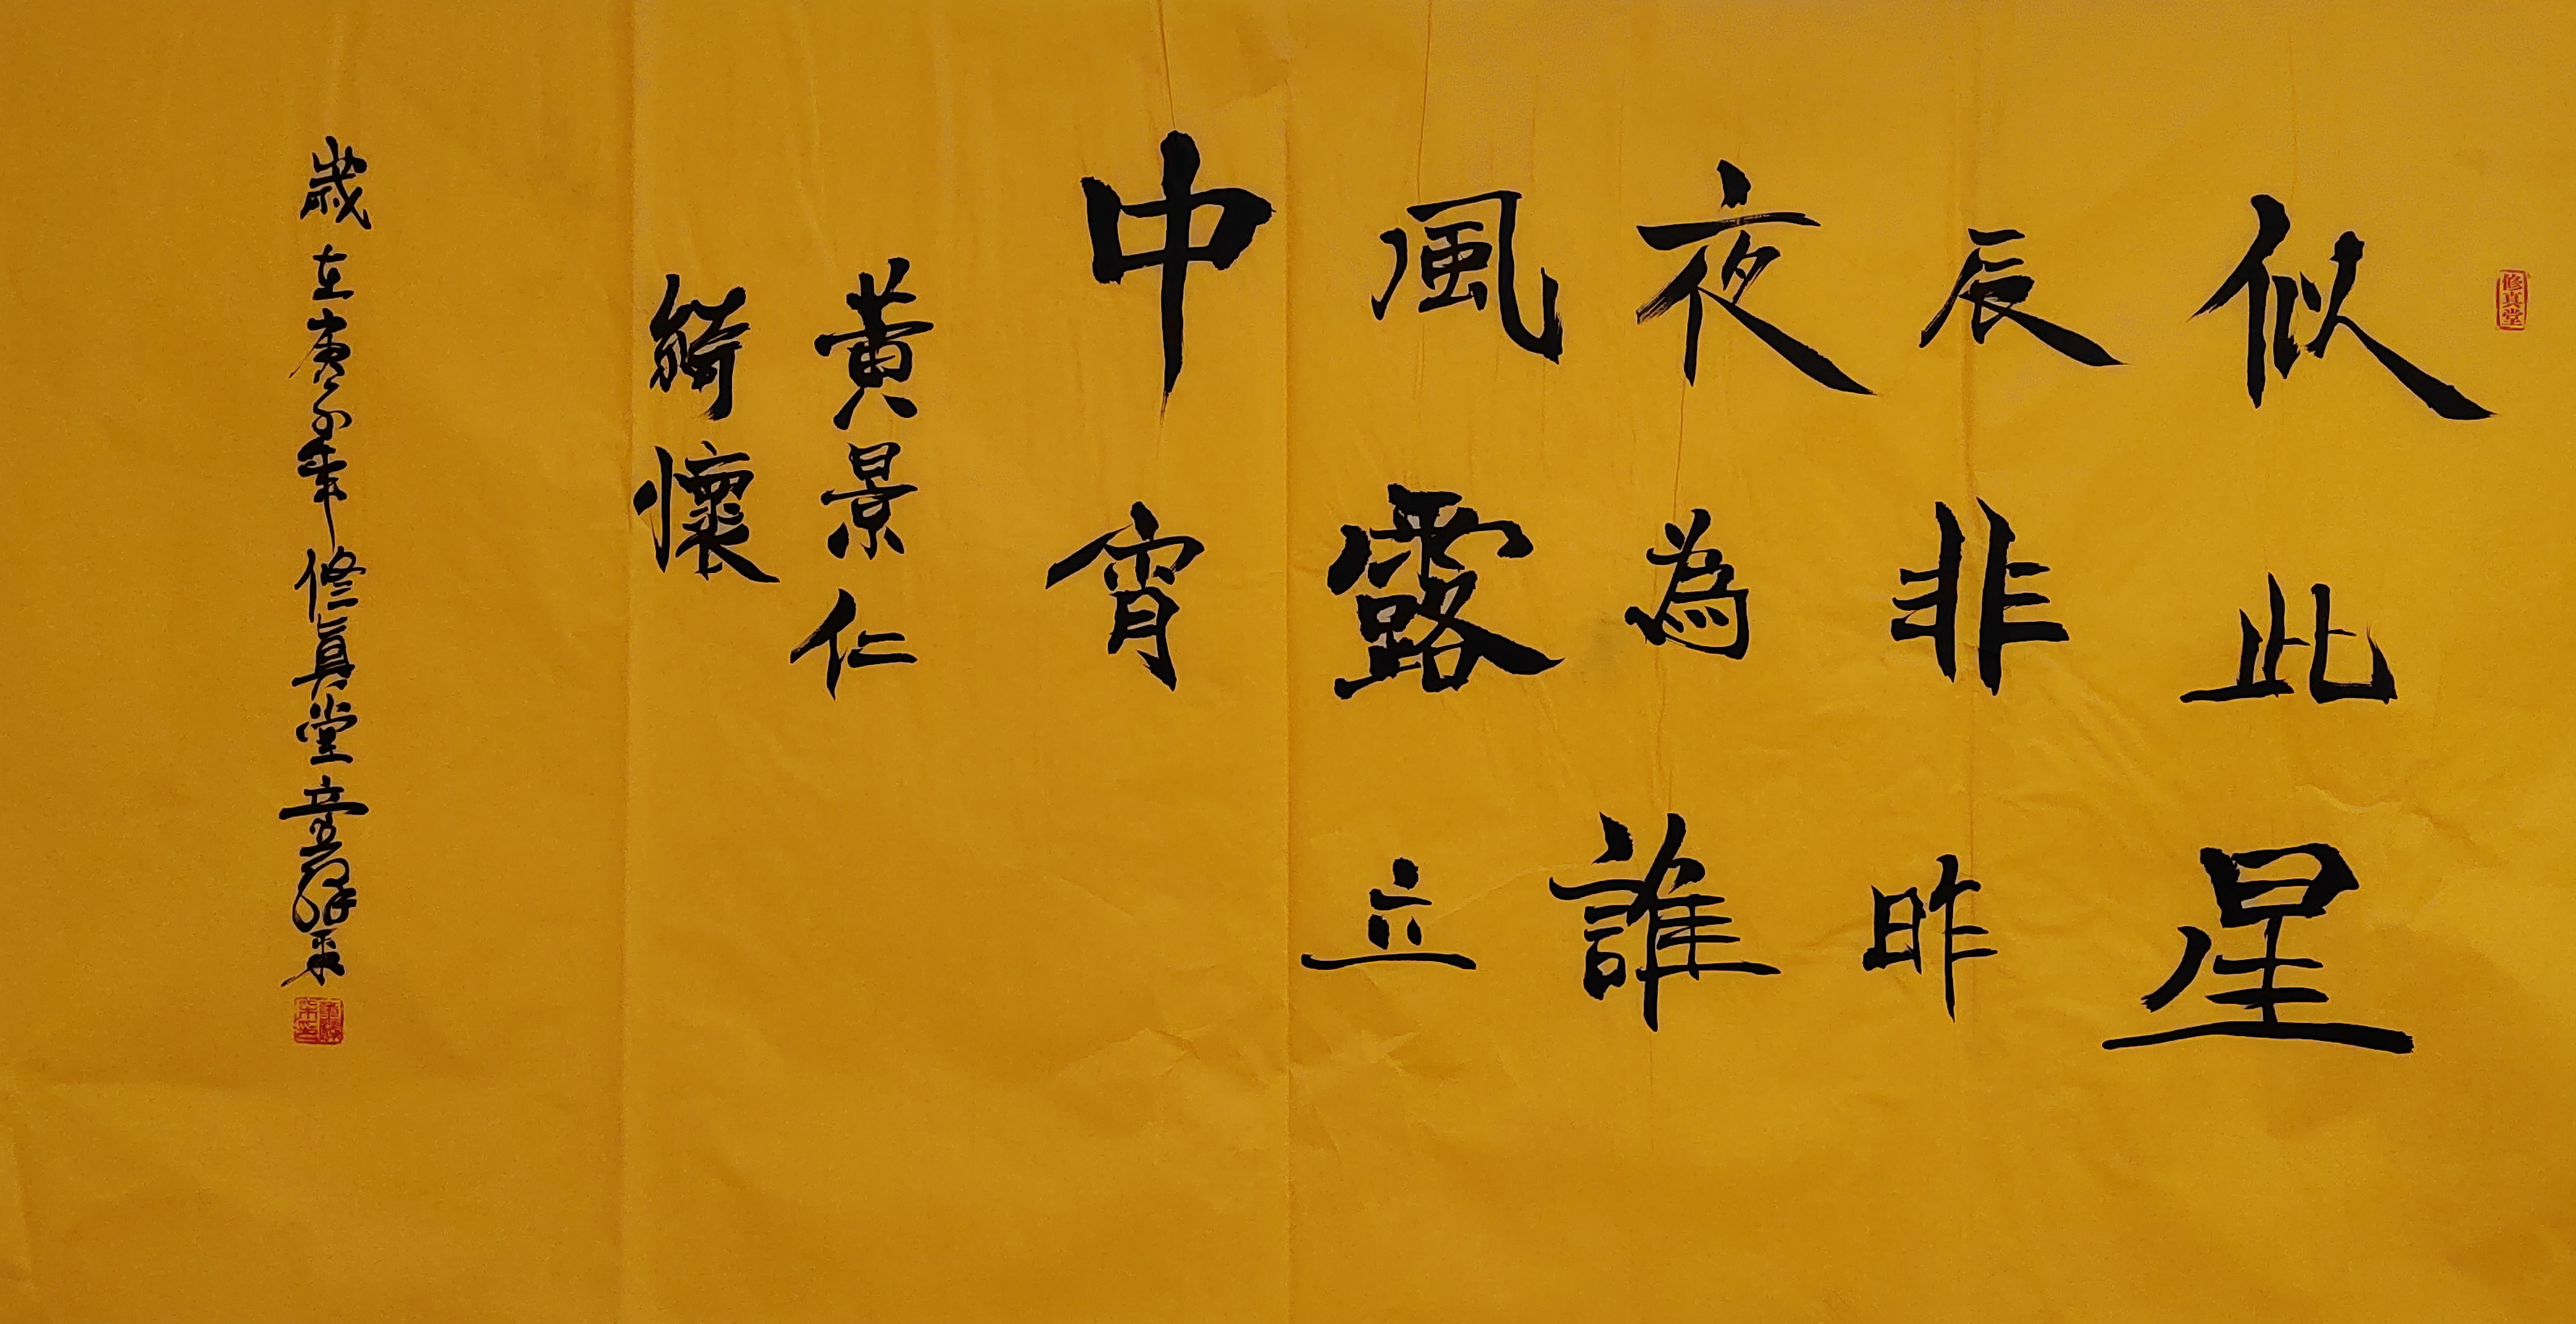 修真堂
似此星
辰非昨
夜為誰
風露立
中宵
黄景仁
綺懷
歲在庚子年修真堂